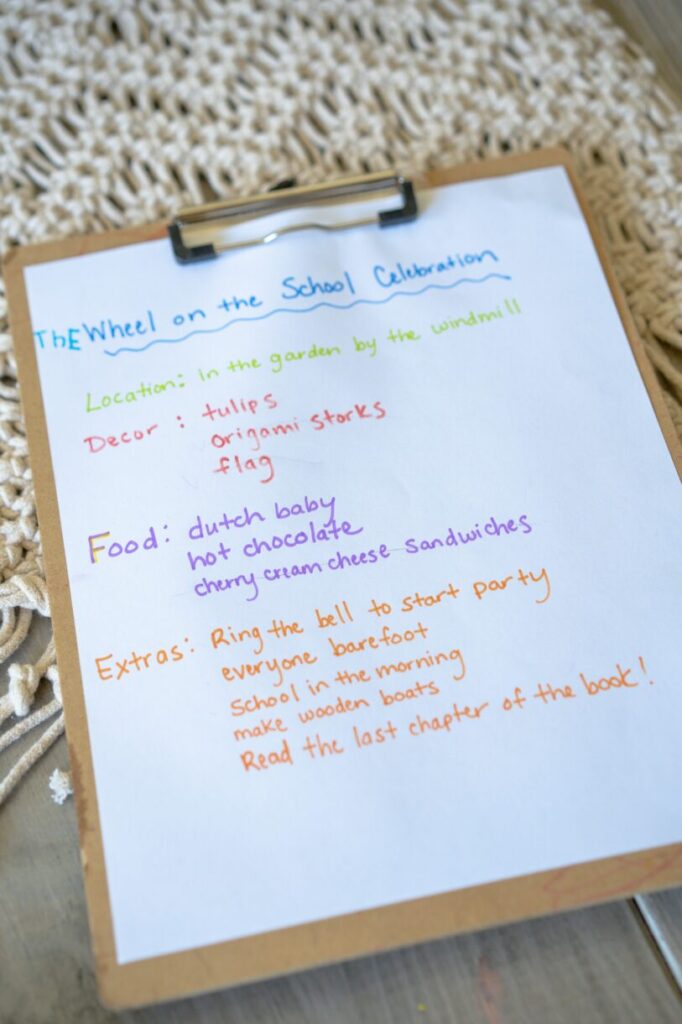 ThE Wheel on the School Celebration
Location: in the garden by the windmill
Decor : tulips
origami storks
flag
Food: dutch baby
hot chocolate
cherry cream cheese sandwiches
Extras: Ring the bell to start party
everyone barefoot
School in the morning
make wooden boats
Read the last chapter of the book!